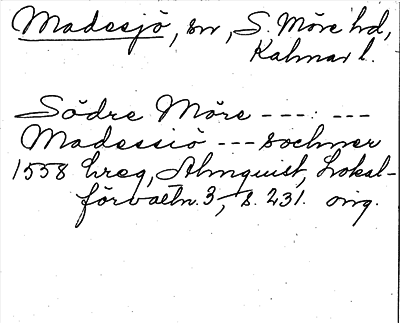 Madesjö, sn, S. Möre hd,
Kalmar l.
Södre Möre --- : ---
Madessiö --- sochner
1558 hreg, Almquist, Lokal-
förvaltn. 3, s. 231. orig.